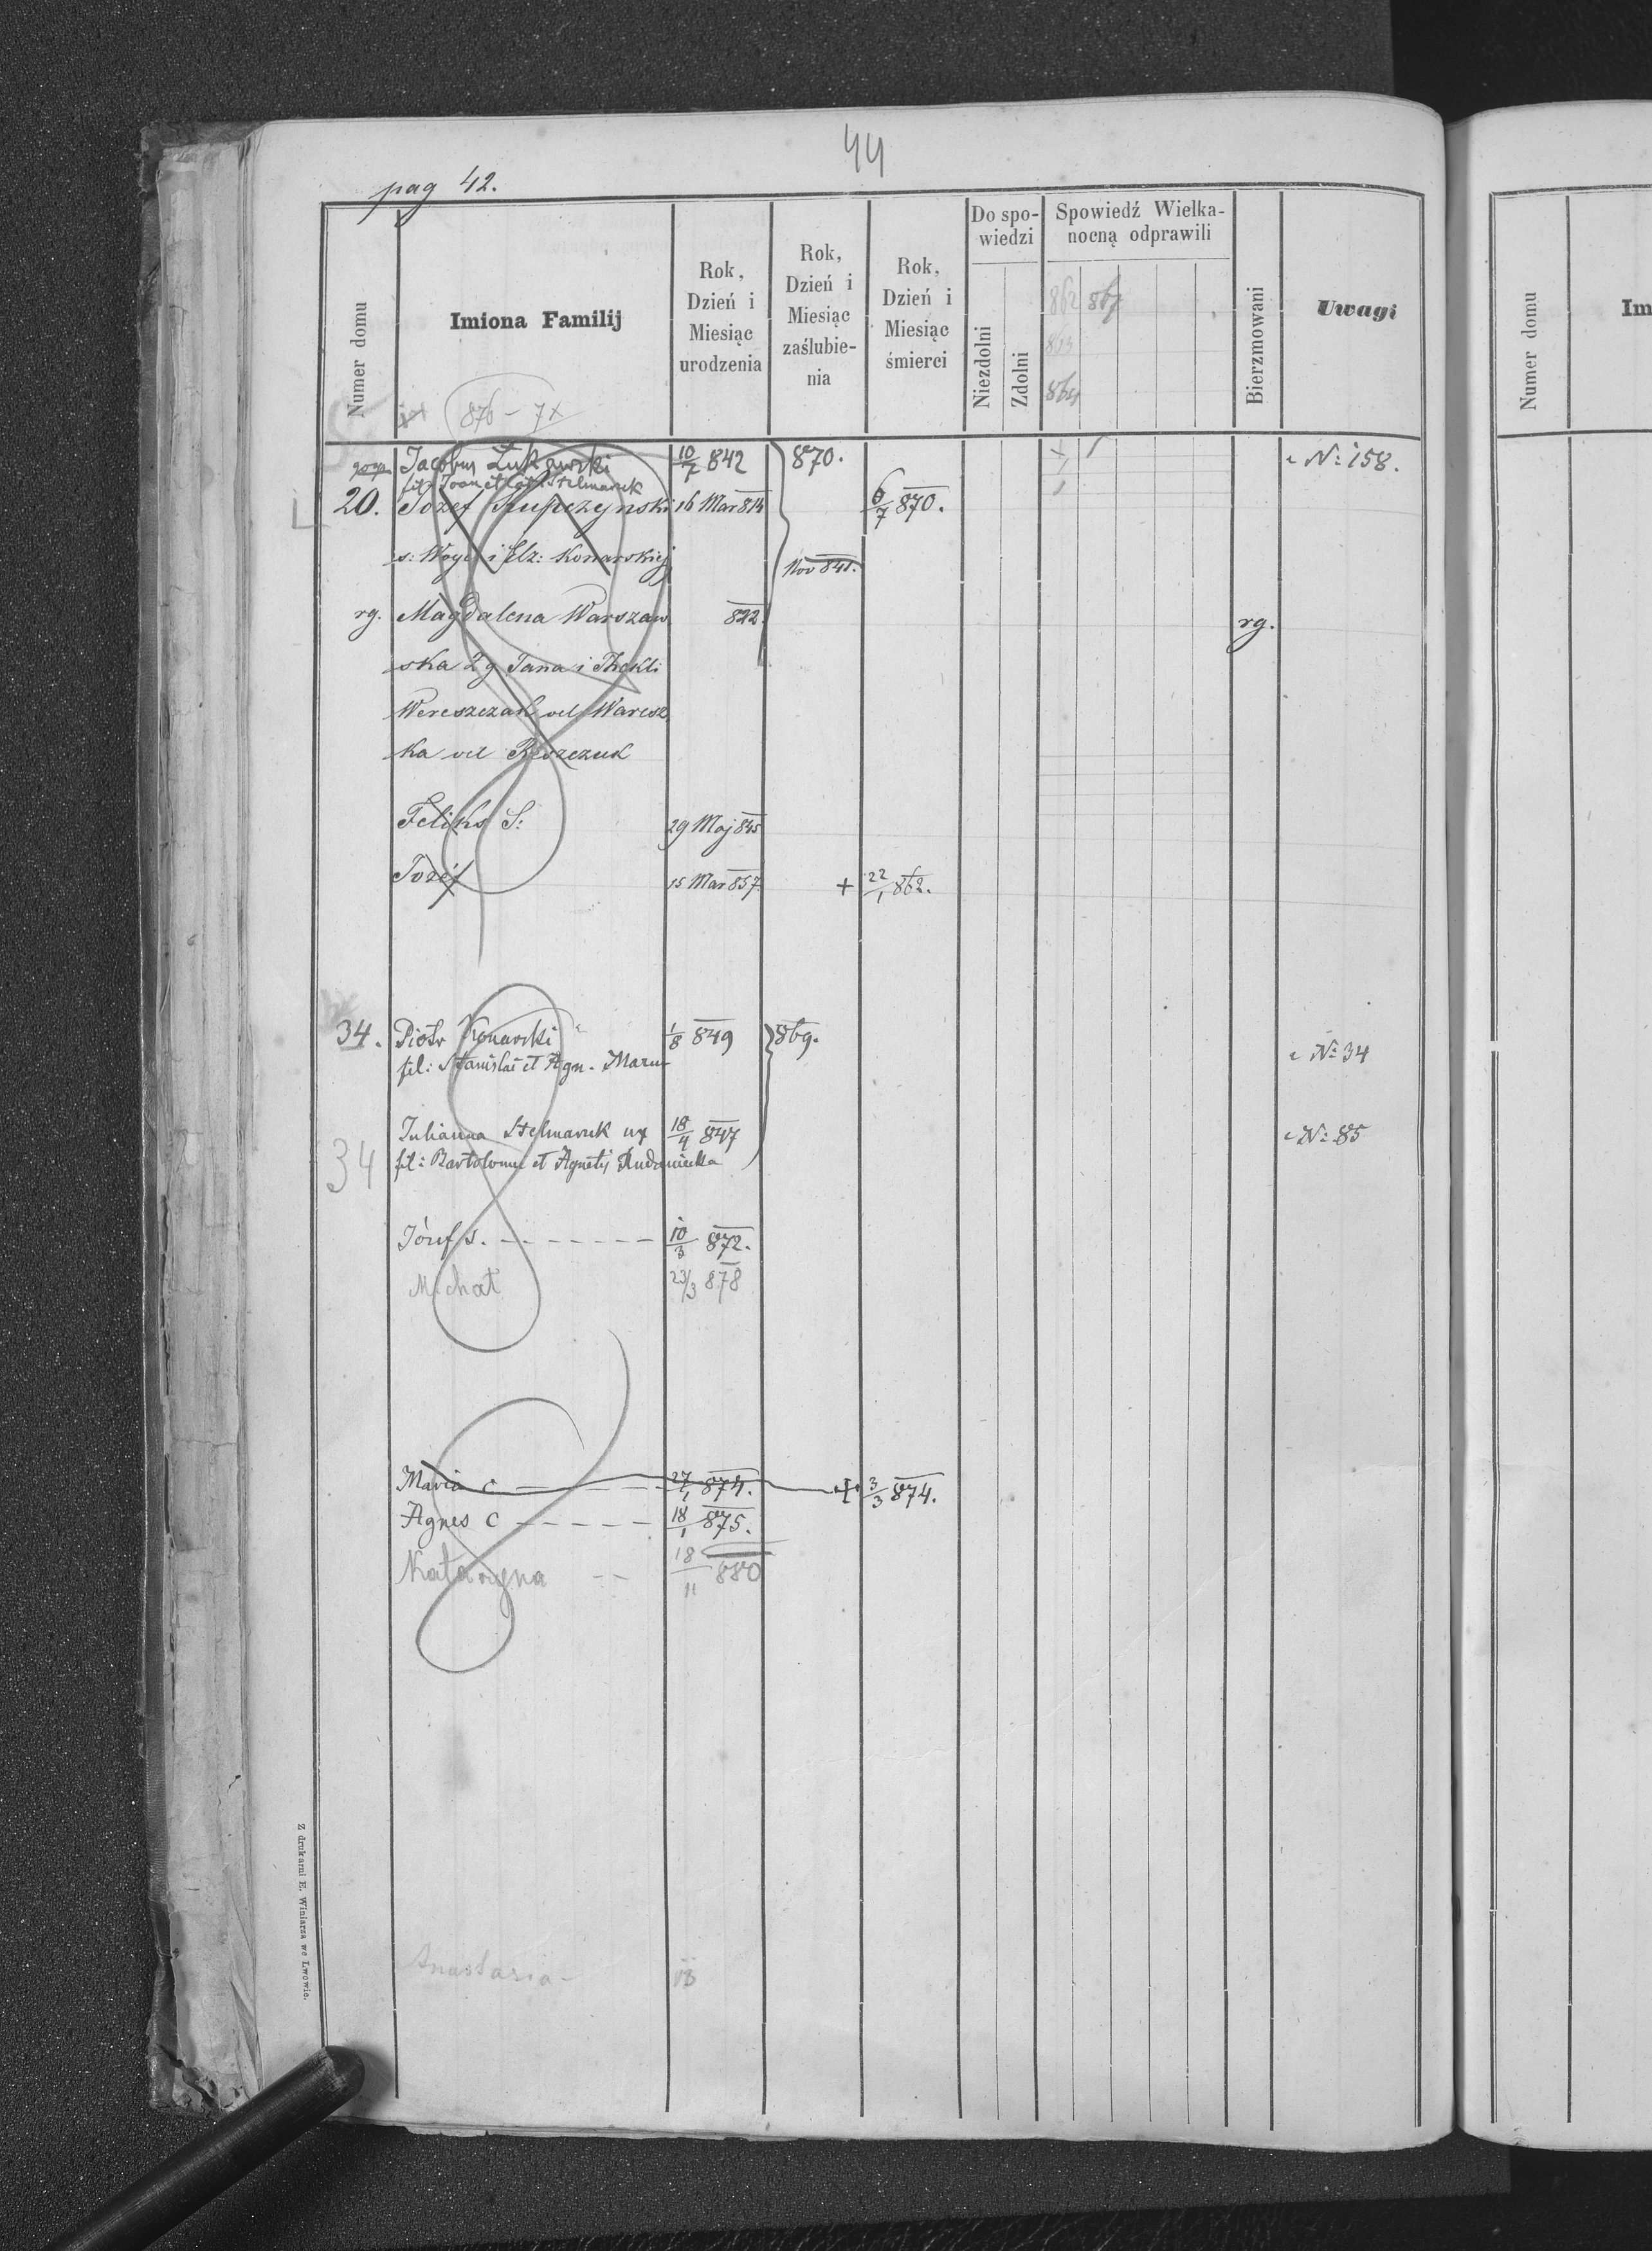 44
pag 42.
Numer domu
Imiona Familij
Rok, Dzień i Miesiąc urodzenia
Rok, Dzień i Miesiąc zaślubienia
Rok, Dzień i Miesiąc śmierci
Do spowiedzi
Niezdolni
Zdolni
Spowiedź Wielkanocną odprawili
862 867
864
Bierzmowani
Uwagi
Numer domu
Im
876 - 7x
Jacobus Łukawski 10/7 842 870. N: 158.
fil: Joan et Cat. Stelmasuk
20. Józef Słupczynski 16 Mar 814 6/7 870.
s: Woyc i Elz: Konarskiej Nov 841.
rg. Magdalena Warszaw 822 rg.
ska 2g Jana i Thekli
Wereszczak vel Waresz
ka vel
Feliks S: 29 Maj 845
Józef 15 Mar 857. + 22/1 862.
34. Piotr Konarski 1/8 849 869. N: 34
fil: Stanislai et Agn. Mazur
Julianna Stelmasuk ux 18/4 847 N: 85
34
fil: Bartolomei et Agnetis Rudawiecka
Józef s. 10/3 872.
Michał 23/3 878
Maria c 27/1 874. + 3/3 874.
Agnes c 18/1 875.
Katarzyna 18/11 880
Anastasia - 13
Z drukarni E. Winiarza we Lwowie.